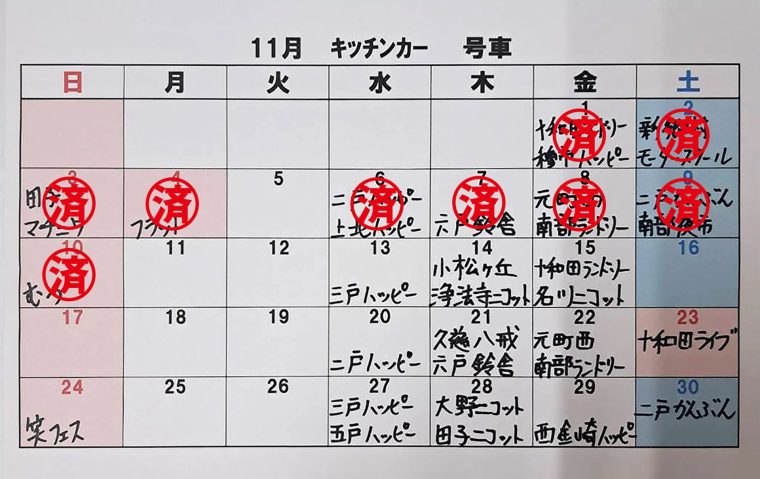 11月 キッチンカー 号車
日 月 火 水 木 金 土
1 2
済 済
ハッピー モータースクール
3 4 5 6 7 8 9
済 済 済 済 済 済
元町 二戸かんぶん
上北ハッピー 六戸鈴舎 南部ランドリー 南部
10 11 12 13 14 15 16
済 小松ヶ丘 十和田ランドリー
三戸ハッピー 浄法寺ニコット 名川ニコット
17 18 19 20 21 22 23
久慈八戒 元町西 十和田ライブ
二戸ハッピー 六戸鈴舎 南部ランドリー
24 25 26 27 28 29 30
三戸ハッピー 大野ニコット 二戸かんぶん
笑フェス 五戸ハッピー 田子ニコット 西金崎ハッピー